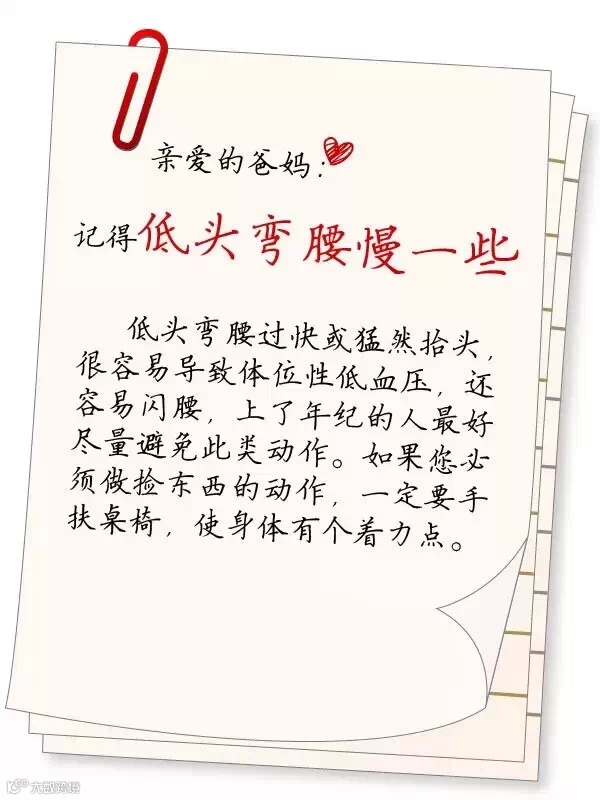 亲爱的爸妈：
记得低头弯腰慢一些
低头弯腰过快或猛然抬头，
很容易导致体位性低血压，还
容易闪腰，上了年纪的人最好
尽量避免此类动作。如果您必
须做捡东西的动作，一定要手
扶桌椅，使身体有个着力点。